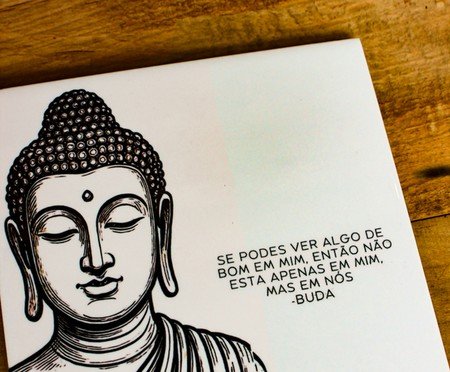 SE PODES VER ALGO DE
BOM EM MIM, ENTÃO NÃO
ESTA APENAS EM MIM,
MAS EM NÓS
-BUDA